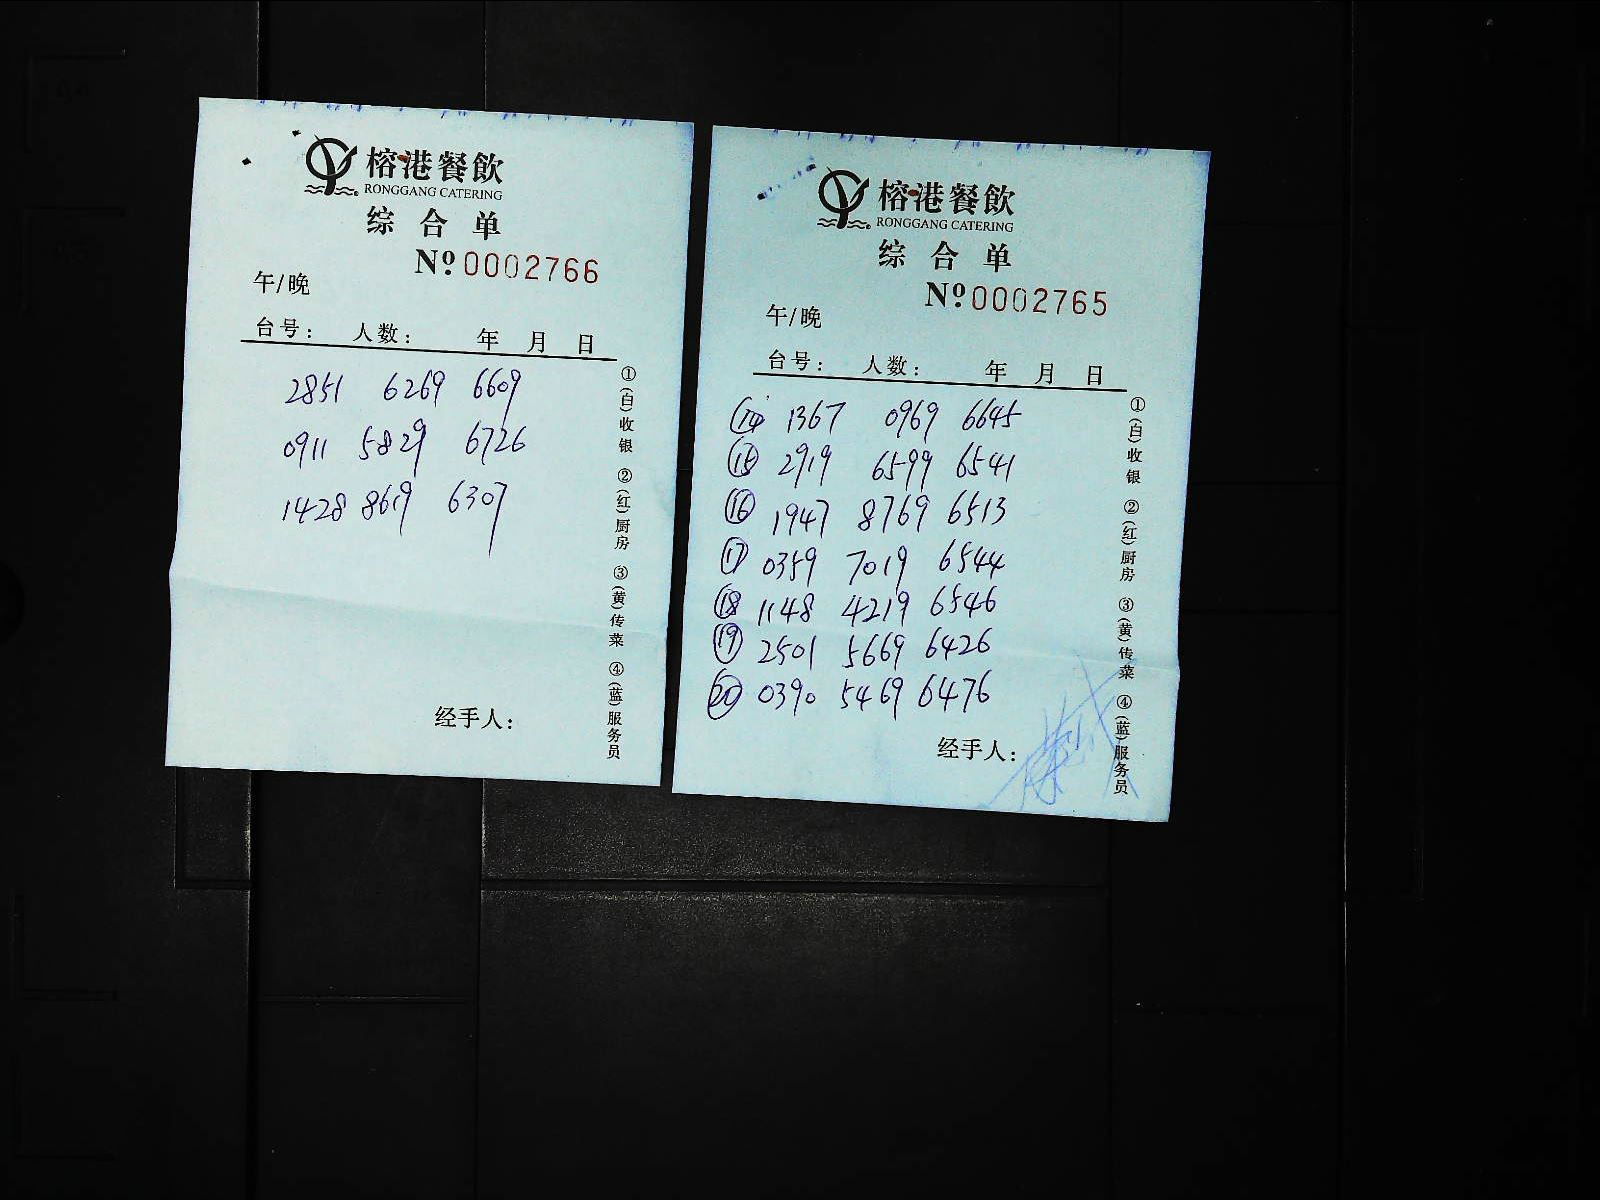 榕港餐飲
RONGGANG CATERING
综合单
Nº 0002766
午/晚
台号: 人数: 年 月 日
2851 6269 6609
0911 5829 6726
1428 8619 6307
①(白)收银 ②(红)厨房 ③(黄)传菜 ④(蓝)服务员
经手人:
榕港餐飲
RONGGANG CATERING
综合单
Nº 0002765
午/晚
台号: 人数: 年 月 日
⑭ 1367 0969 6645
⑮ 2919 6599 6541
⑯ 1947 8769 6513
⑰ 0359 7019 6544
⑱ 1148 4219 6546
⑲ 2501 5669 6426
⑳ 0390 5469 6476
①(白)收银 ②(红)厨房 ③(黄)传菜 ④(蓝)服务员
经手人: